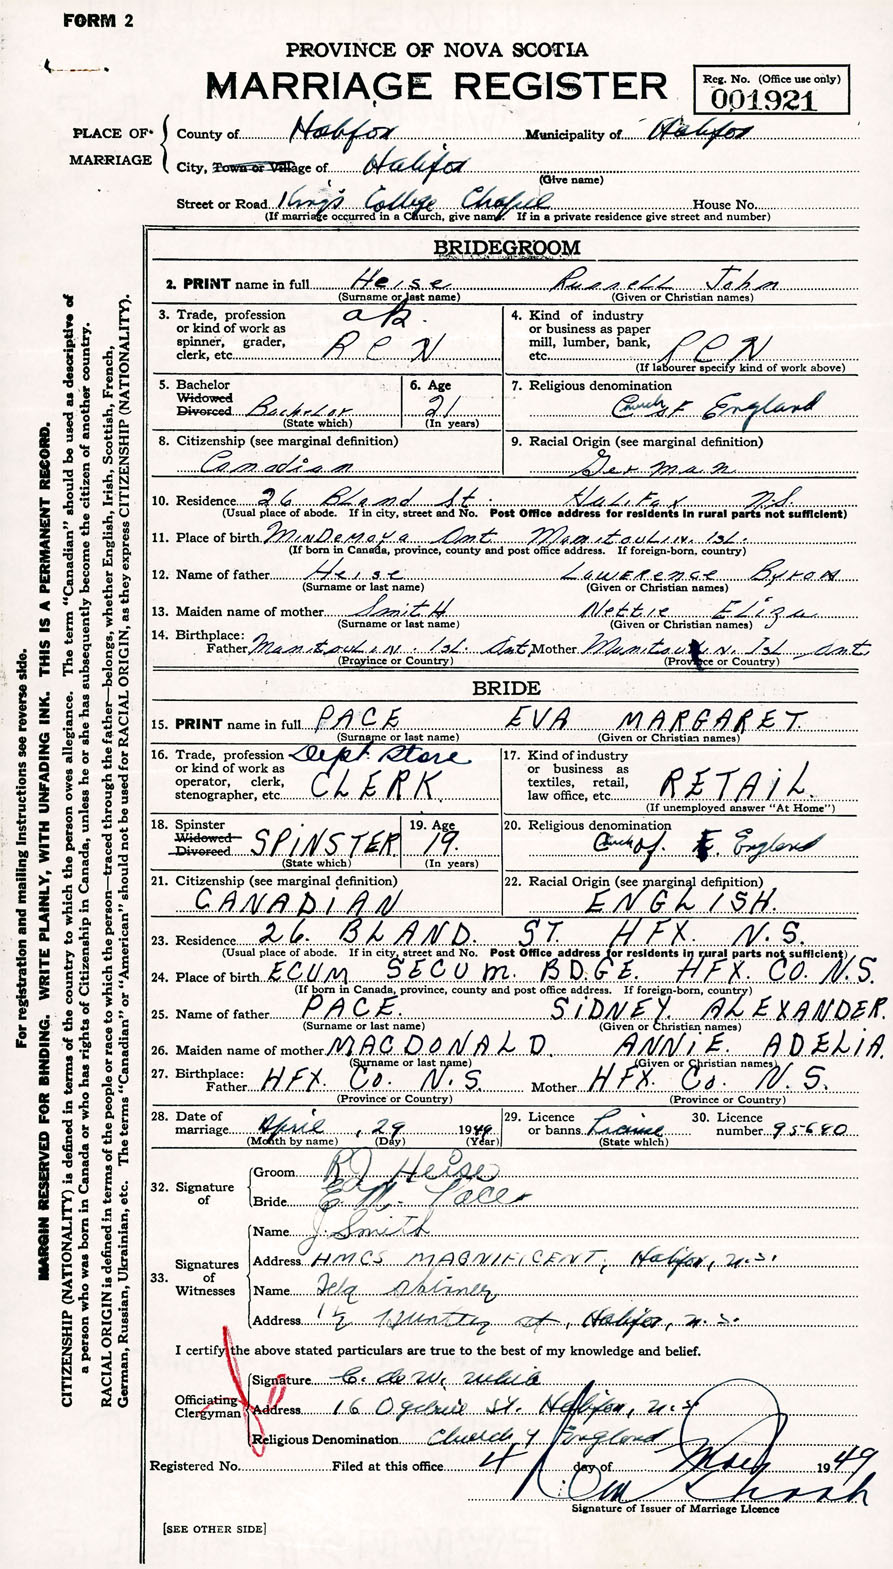 FORM 2
PROVINCE OF NOVA SCOTIA
MARRIAGE REGISTER
Reg. No. (Office use only)
001921
PLACE OF MARRIAGE
County of Halifax Municipality of Halifax
City, Town or Village of Halifax
(Give name)
Street or Road King's College Chapel House No.
(If marriage occurred in a Church, give name. If in a private residence give street and number)
BRIDEGROOM
2. PRINT name in full Heise Russell John
(Surname or last name) (Given or Christian names)
3. Trade, profession or kind of work as spinner, grader, clerk, etc. AB. RCN
4. Kind of industry or business as paper mill, lumber, bank, etc. RCN
(If labourer specify kind of work above)
5. Bachelor Widowed Divorced Bachelor
(State which)
6. Age 21
(In years)
7. Religious denomination Church of England
8. Citizenship (see marginal definition) Canadian
9. Racial Origin (see marginal definition) German
10. Residence 26 Bland St. Halifax N.S.
(Usual place of abode. If in city, street and No. Post Office address for residents in rural parts not sufficient)
11. Place of birth Mindemoya Ont Manitoulin Isl.
(If born in Canada, province, county and post office address. If foreign-born, country)
12. Name of father Heise Lawerence Byron
(Surname or last name) (Given or Christian names)
13. Maiden name of mother Smith Nettie Eliza
(Surname or last name) (Given or Christian names)
14. Birthplace:
Father Manitoulin Isl. Ont. Mother Manitoulin Isl Ont
(Province or Country) (Province or Country)
BRIDE
15. PRINT name in full PACE EVA MARGARET
(Surname or last name) (Given or Christian names)
16. Trade, profession or kind of work as operator, clerk, stenographer, etc. Dept. Store CLERK
17. Kind of industry or business as textiles, retail, law office, etc. RETAIL.
(If unemployed answer "At Home")
18. Spinster Widowed Divorced SPINSTER
(State which)
19. Age 19.
(In years)
20. Religious denomination Church of England
21. Citizenship (see marginal definition) CANADIAN
22. Racial Origin (see marginal definition) ENGLISH.
23. Residence 26. BLAND. ST. HFX. N.S.
(Usual place of abode. If in city, street and No. Post Office address for residents in rural parts not sufficient)
24. Place of birth ECUM SECUM. BDGE. HFX. CO. N.S.
(If born in Canada, province, county and post office address. If foreign-born, country)
25. Name of father PACE. SIDNEY. ALEXANDER.
(Surname or last name) (Given or Christian names)
26. Maiden name of mother MACDONALD. ANNIE. ADELIA.
(Surname or last name) (Given or Christian names)
27. Birthplace:
Father HFX. Co. N.S. Mother HFX. Co. N.S.
(Province or Country) (Province or Country)
28. Date of marriage April, 29 1949
(Month by name) (Day) (Year)
29. Licence or banns License
(State which)
30. Licence number 95680
32. Signature of
Groom RJ Heise
Bride E. M. Pace
33. Signatures of Witnesses
Name J. Smith
Address HMCS MAGNIFICENT, Halifax, N.S.
Name
Address St, Halifax, N.S.
I certify the above stated particulars are true to the best of my knowledge and belief.
Officiating Clergyman
Signature
Address 16 Ogilvie St. Halifax, N.S.
Religious Denomination Church of England
Registered No. Filed at this office 4 day of May 1949
Signature of Issuer of Marriage Licence
[SEE OTHER SIDE]
For registration and mailing instructions see reverse side.
MARGIN RESERVED FOR BINDING. WRITE PLAINLY, WITH UNFADING INK. THIS IS A PERMANENT RECORD.
CITIZENSHIP (NATIONALITY) is defined in terms of the country to which the person owes allegiance. The term "Canadian" should be used as descriptive of
a person who was born in Canada or who has rights of Citizenship in Canada, unless he or she has subsequently become the citizen of another country.
RACIAL ORIGIN is defined in terms of the people or race to which the person—traced through the father—belongs, whether English, Irish, Scottish, French,
German, Russian, Ukrainian, etc. The terms "Canadian" or "American" should not be used for RACIAL ORIGIN, as they express CITIZENSHIP (NATIONALITY).